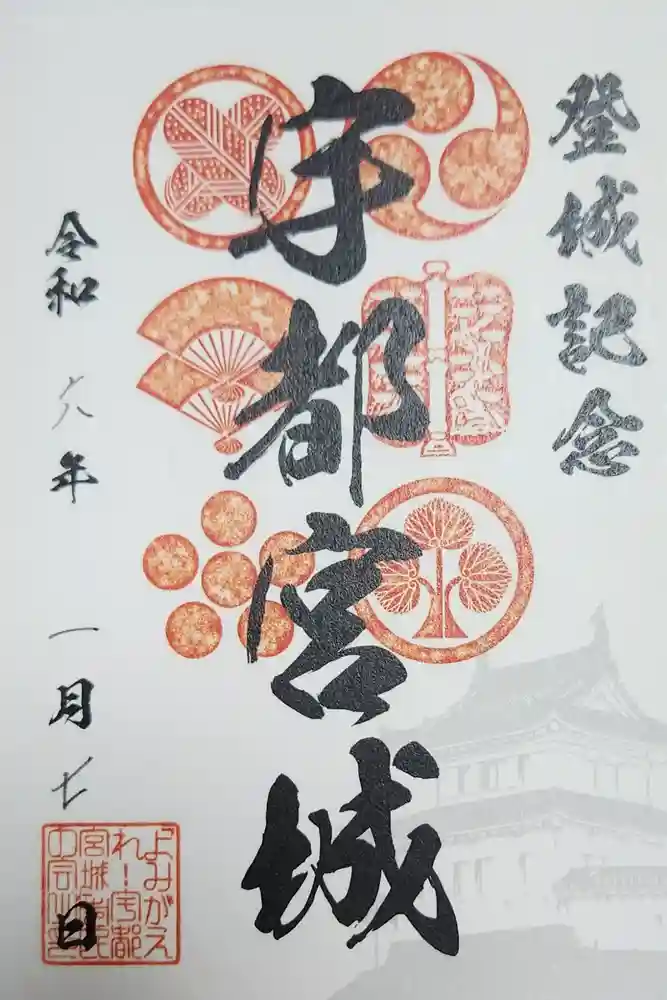 登城記念
宇都宮城
令和六年 一月七日
よみがえ
れ！宇都
宮城市民
の会之印